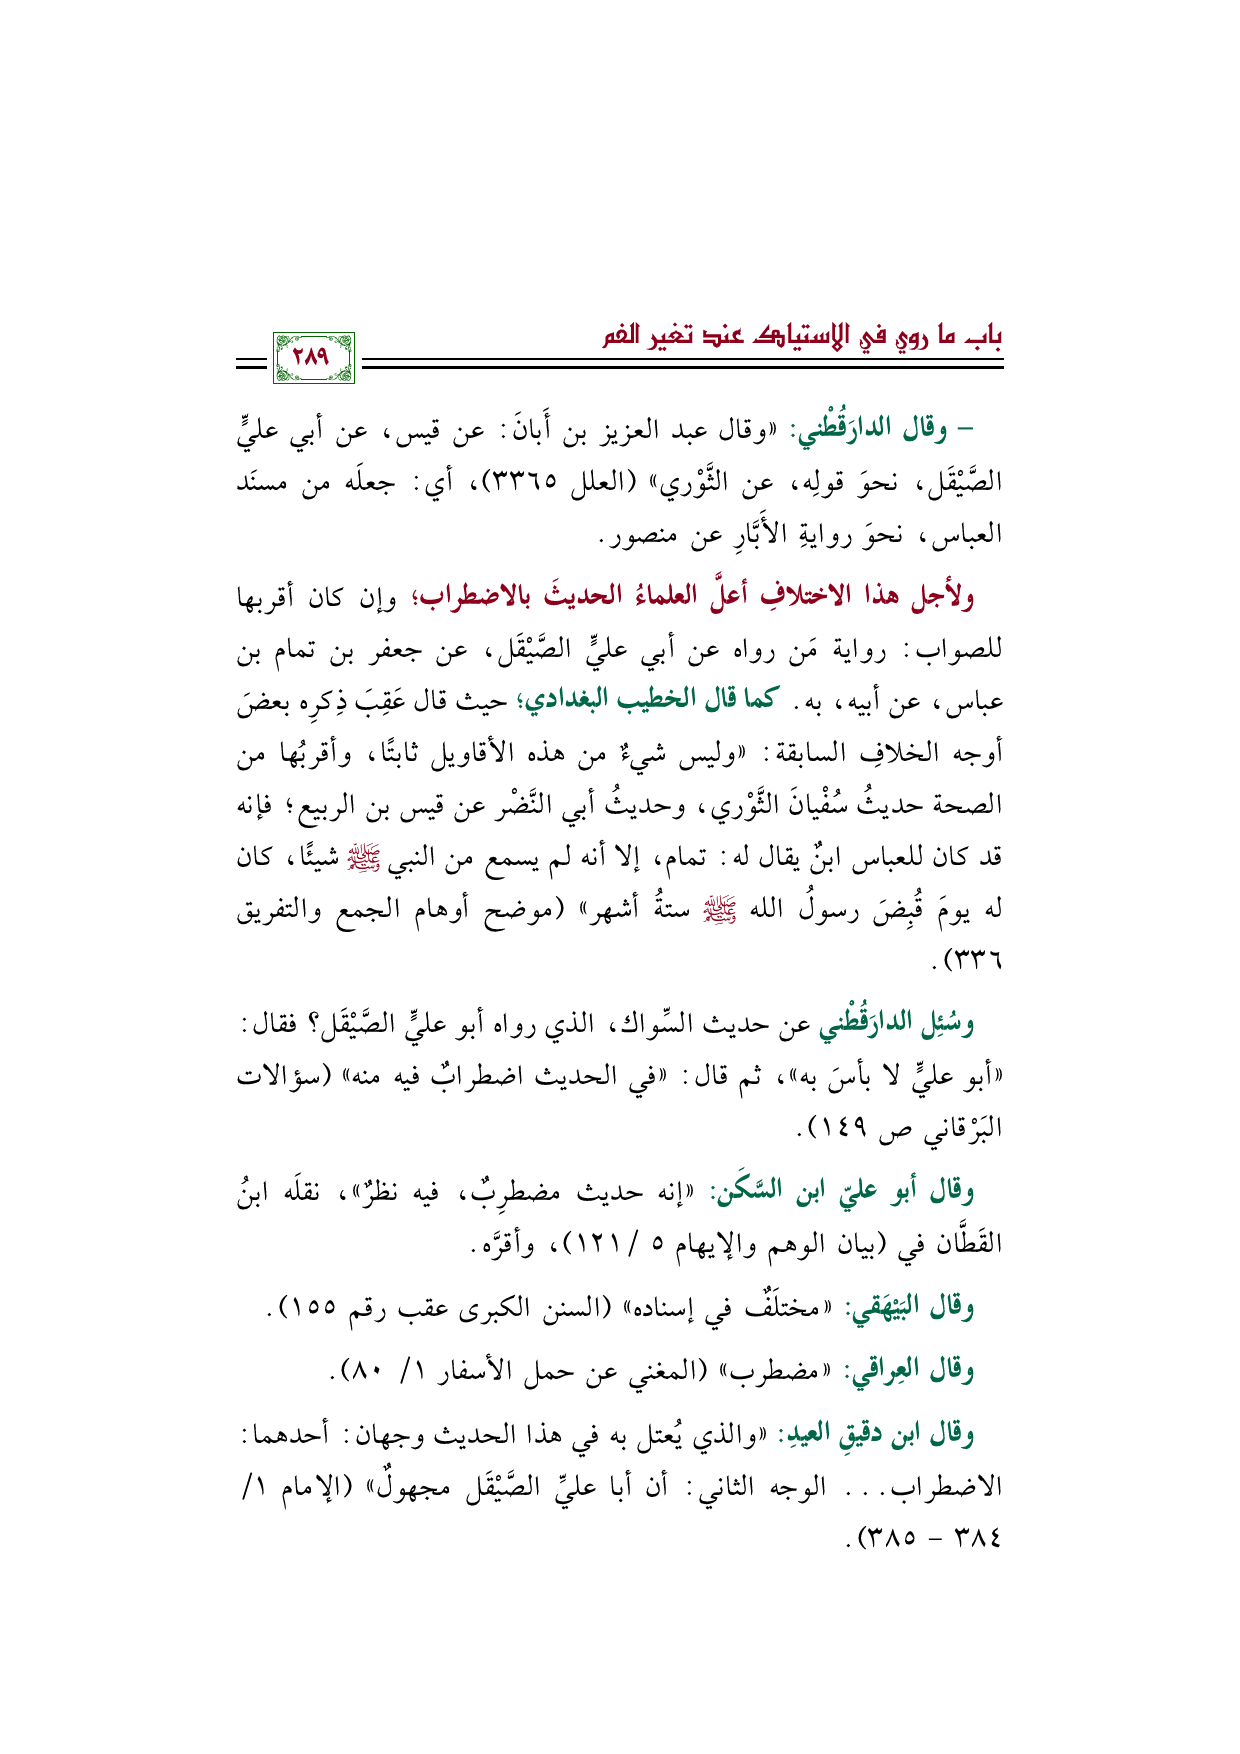 باب ما روي في الاستياك عند تغير الفم
٢٨٩
– وقال الدارَقُطْني: «وقال عبد العزيز بن أَبانَ: عن قيس، عن أبي عليٍّ
الصَّيْقَل، نحوَ قولِه، عن الثَّوْري» (العلل ٣٣٦٥)، أي: جعلَه من مسنَد
العباس، نحوَ روايةِ الأَبَّارِ عن منصور.
ولأجل هذا الاختلافِ أعلَّ العلماءُ الحديثَ بالاضطراب؛ وإن كان أقربها
للصواب: رواية مَن رواه عن أبي عليٍّ الصَّيْقَل، عن جعفر بن تمام بن
عباس، عن أبيه، به. كما قال الخطيب البغدادي؛ حيث قال عَقِبَ ذِكرِه بعضَ
أوجه الخلافِ السابقة: «وليس شيءٌ من هذه الأقاويل ثابتًا، وأقربُها من
الصحة حديثُ سُفْيانَ الثَّوْري، وحديثُ أبي النَّضْر عن قيس بن الربيع؛ فإنه
قد كان للعباس ابنٌ يقال له: تمام، إلا أنه لم يسمع من النبي ﷺ شيئًا، كان
له يومَ قُبِضَ رسولُ الله ﷺ ستةُ أشهر» (موضح أوهام الجمع والتفريق
٣٣٦).
وسُئِل الدارَقُطْني عن حديث السِّواك، الذي رواه أبو عليٍّ الصَّيْقَل؟ فقال:
«أبو عليٍّ لا بأسَ به»، ثم قال: «في الحديث اضطرابٌ فيه منه» (سؤالات
البَرْقاني ص ١٤٩).
وقال أبو عليّ ابن السَّكَن: «إنه حديث مضطرِبٌ، فيه نظرٌ»، نقلَه ابنُ
القَطَّان في (بيان الوهم والإيهام ٥ /١٢١)، وأقرَّه.
وقال البَيْهَقي: «مختلَفٌ في إسناده» (السنن الكبرى عقب رقم ١٥٥).
وقال العِراقي: «مضطرب» (المغني عن حمل الأسفار ١/ ٨٠).
وقال ابن دقيقِ العيدِ: «والذي يُعتل به في هذا الحديث وجهان: أحدهما:
الاضطراب... الوجه الثاني: أن أبا عليٍّ الصَّيْقَل مجهولٌ» (الإمام ١/
٣٨٤ – ٣٨٥).